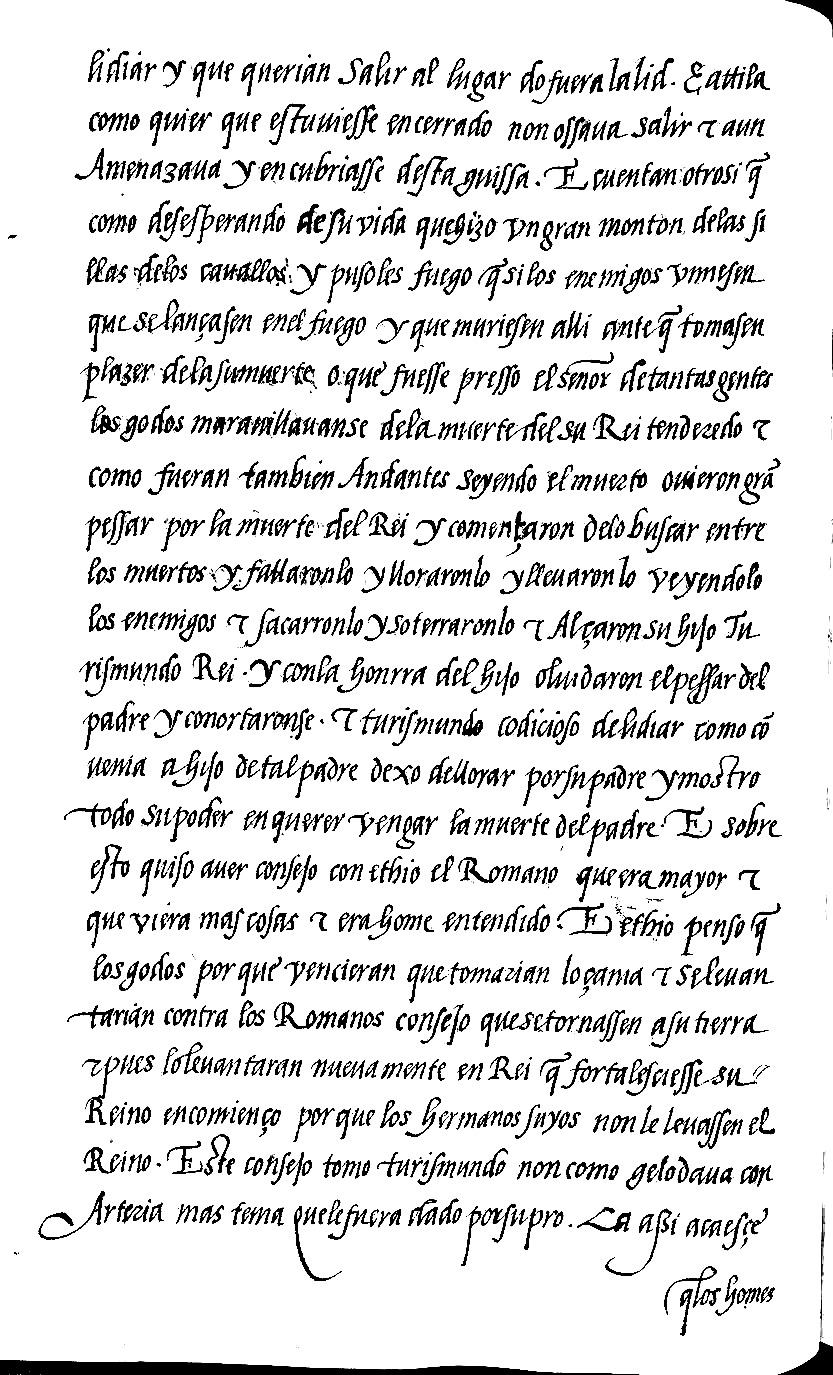 lidiar y que querian Salir al lugar do fuera la lid. E attila
como quier que estuuiesse encerrado non ossaua salir τ aun
Amenazaua y encubriasse desta guissa. E cuentan otrosi q̃
como desesperando de su vida que hizo vn gran monton delas si
llas delos cauallos y pusoles fuego q̃ si los enemigos viniesen
que se lançasen enel fuego y que muriesen alli ante q̃ tomasen
plazer dela su muerte o que fuesse presso el señor de tantas gentes
los godos marauillauanse dela muerte del su Rei tenderedo τ
como fueran tambien Andantes seyendo el muerto ouieron grã
pessar por la muerte del Rei y començaron delo buscar entre
los muertos y fallaronlo y lloraronlo y lleuaronlo veyendolo
los enemigos τ sacarronlo y soterraronlo τ Alçaron su hijo Tu
rismundo Rei. y con la honrra del hijo oluidaron el pessar del
padre y conortaronse. τ turismundo codicioso de lidiar como cõ
uenia a hijo de tal padre dexo dellorar por su padre y mostro
todo su poder en querer vengar la muerte del padre. E sobre
esto quiso auer consejo con ethio el Romano que era mayor τ
que viera mas cosas τ era home entendido. E ethio penso q̃
los godos por que vencieran que tomarian loçania τ se leuan
tarian contra los Romanos consejo que se tornassen a su tierra
τ pues lo leuantaran nueuamente en Rei q̃ fortalesciesse su
Reino en comienço por que los hermanos suyos non le leuassen el
Reino. Este consejo tomo turismundo non como gelo daua con
Arteria mas tenia que le fuera dado por su pro. Ca assi acaesçe
q̃ los homes